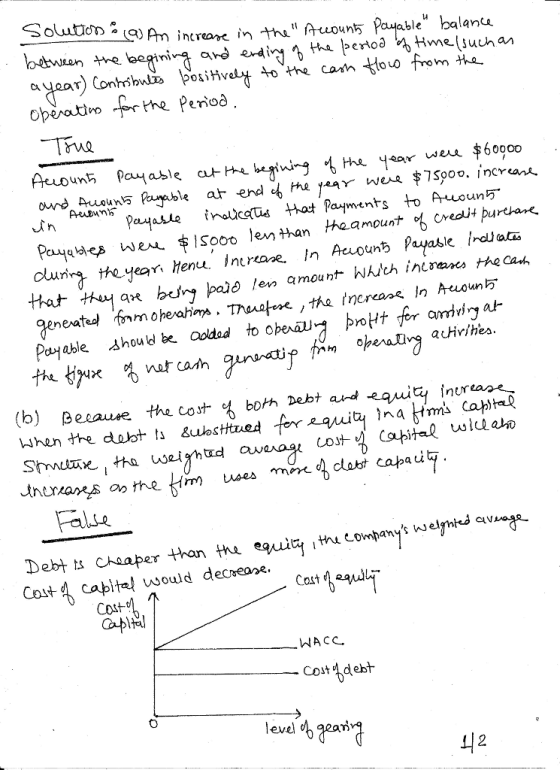 Solution : (a) An increase in the "Accounts Payable" balance
between the begining and ending of the period of time (such as
a year) Contributes positively to the cash flow from the
operation for the Period.
True
Accounts Payable at the begining of the year were $60000
and Accounts Payable at end of the year were $75000. increase
in Accounts Payable indicates that Payments to Accounts
Payables were $15000 less than the amount of credit purchase
during the year. Hence Increase In Accounts Payable Indicates
that they are being paid less amount which increases the cash
generated from operations. Therefore, the increase In Accounts
Payable should be added to operating profit for arriving at
the figure of net cash generatig from operating activities.
(b) Because the cost of both Debt and equity increase
when the debt is substitued for equity in a firm's Capital
Structure, the weighted average cost of Capital will also
increases as the firm uses more of debt capacity.
False
Debt is cheaper than the equity, the company's weighted average
Cost of capital would decrease.
Cost of equity
Cost of
Capital
WACC
Cost of debt
0
level of gearing
1/2